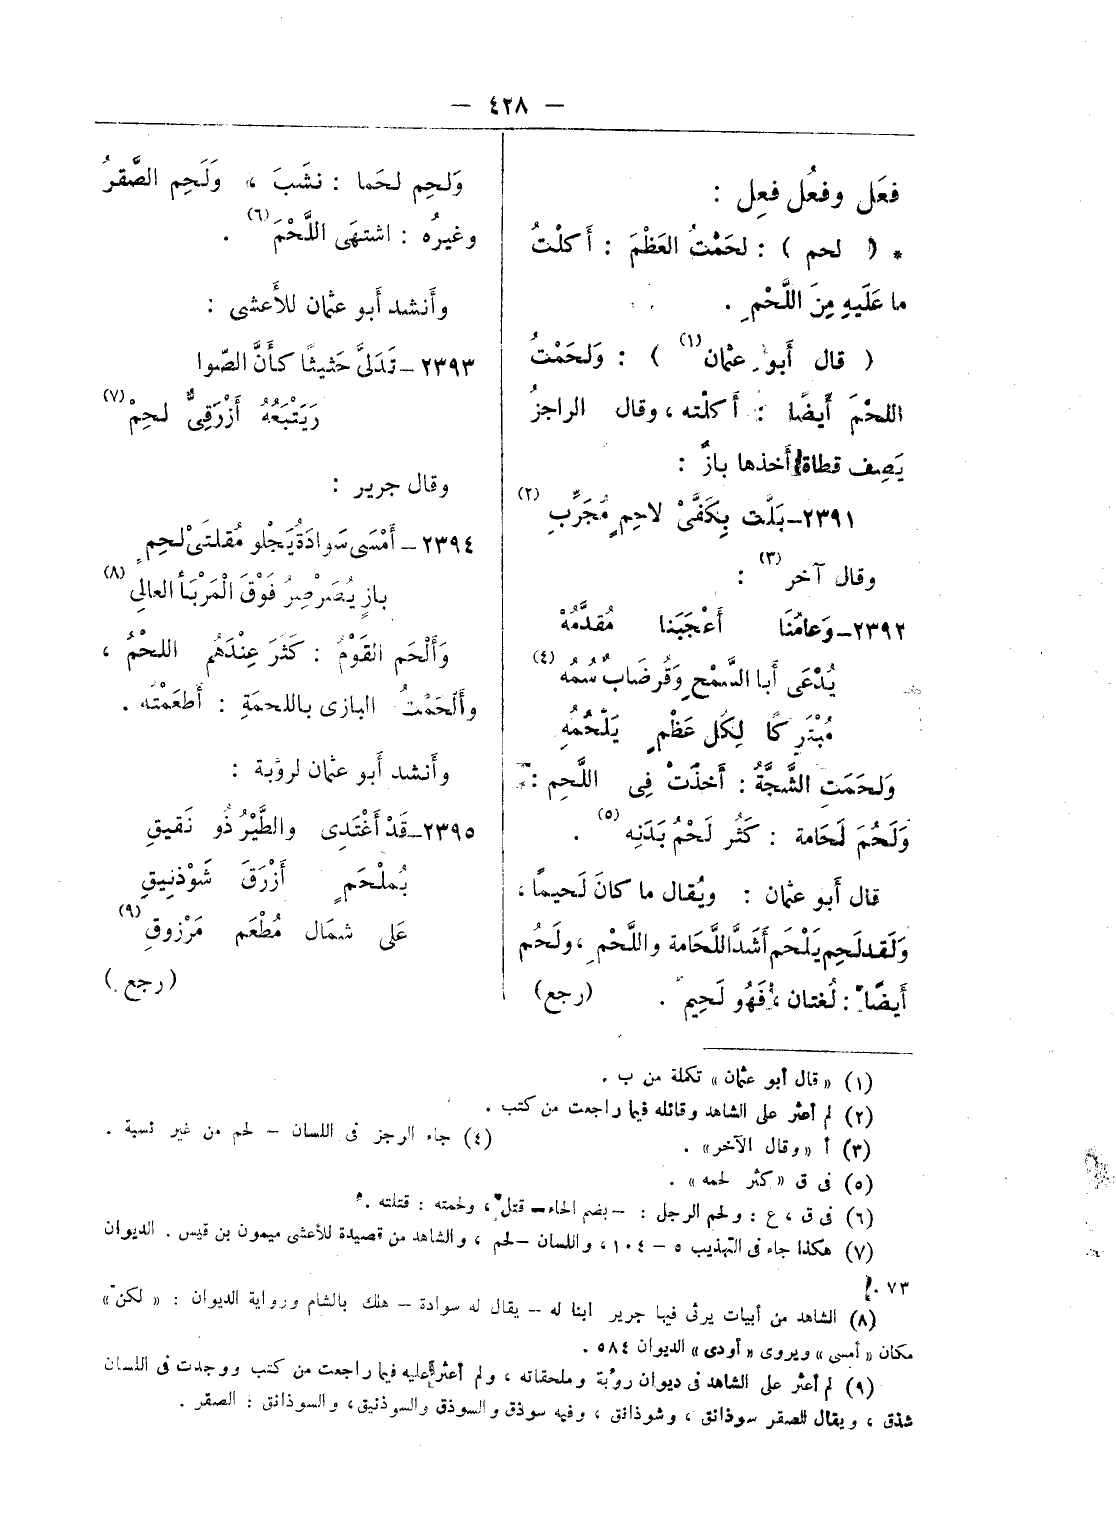 — ٤٢٨ —
فعَل وفعُل فعِل :
* ( لحم ) : لحَمْتُ العَظْمَ : أَكلْتُ
ما عَلَيهِ مِنَ اللَّحْمِ .
( قال أَبو عثمان (١) ) : وَلحَمْتُ
اللحْمَ أَيضًا : أَكلْته ، وقال الراجزُ
يَصِف قطاة أَخذها بازٌ :
٢٣٩١ـ بَلَّت بِكَفَّىْ لاحِمٍ مُجَرِّبِ (٢)
وقال آخر (٣) :
٢٣٩٢ـ وَعامُنَا أَعْجَبَنا مُقدَّمُهْ
يُدْعَى أَبا السَّمْحِ وَقُرضَابٌ سُمُهْ (٤)
مُبْتَرِكًا لِكُل عَظْمٍ يَلْحُمُهِ
وَلحَمَتِ الشَّجَّةُ : أَخذَتْ فِى اللَّحِم :
وَلَحُمَ لَحَامة : كَثُر لَحْمُ بَدَنِه (٥) .
قال أَبو عثمان : ويُقال ما كانَ لَحيمًا ،
وَلَقد لَحِم يَلْحَم أَشَدَّ اللَّحَامة واللَّحْمِ ، ولَحُم
أَيضًا : لُغتان ، فَهُو لَحِيم . (رجع)
وَلَحِم لحَما : نشَبَ ، وَلَحِم الصَّقرُ
وغيرُه : اشتهَى اللَّحْمَ (٦) .
وأَنشد أَبو عثمان للأَعشى :
٢٣٩٣ ـ تَدَلىَّ حَثيثًا كأَنَّ الصّوا
رَ يَتْبَعُهُ أَزْرَقِىٌّ لحِمْ (٧)
وقال جرير :
٢٣٩٤ ـ أَمْسَى سَوادَةُ يَجْلو مُقلتَىْ لحِمٍ
بازٍ يُصَرْصِرُ فَوْقَ الْمَرْبَأ العالِى (٨)
وَأَلْحَم القَوْمُ : كَثرَ عِنْدَهُم اللحْمُ ،
وأَلحَمْتُ البازى باللحمَةِ : أَطعَمْتُه .
وأَنشد أَبو عثمان لرؤبة :
٢٣٩٥ـ قَدْ أَغْتَدِى والطَّيْرُ ذُو نَقيقِ
بُملْحَمٍ أَزْرَقَ شَوْذنِيقِ
عَلى شمَال مُطْعَم مَرْزوقِ (٩)
(رجع)
(١) «قال أبو عثمان» تكملة من ب .
(٢) لم أعثر على الشاهد وقائله فيما راجعت من كتب .
(٣) أ «وقال الآخر» . (٤) جاء الرجز فى اللسان – لحم من غير نسبة .
(٥) فى ق «كثر لحمه» .
(٦) فى ق ، ع : ولحم الرجل : – بضم الحاء – قتل ، ولحمته : قتلته .
(٧) هكذا جاء فى التهذيب ٥ – ١٠٤ ، واللسان – لحم ، والشاهد من قصيدة للأعشى ميمون بن قيس . الديوان
٧٣ .
(٨) الشاهد من أبيات يرثى فيها جرير ابنا له – يقال له سوادة – هلك بالشام ورواية الديوان : «لكن»
مكان «أمسى» ويروى «أودى» الديوان ٥٨٤ .
(٩) لم أعثر على الشاهد فى ديوان رؤبة وملحقاته ، ولم أعثر عليه فيما راجعت من كتب ووجدت فى اللسان
شذق ، ويقال للصقر سوذانق ، وشوذانق ، وفيه سوذق والسوذق والسوذنيق ، والسوذانق : الصقر .